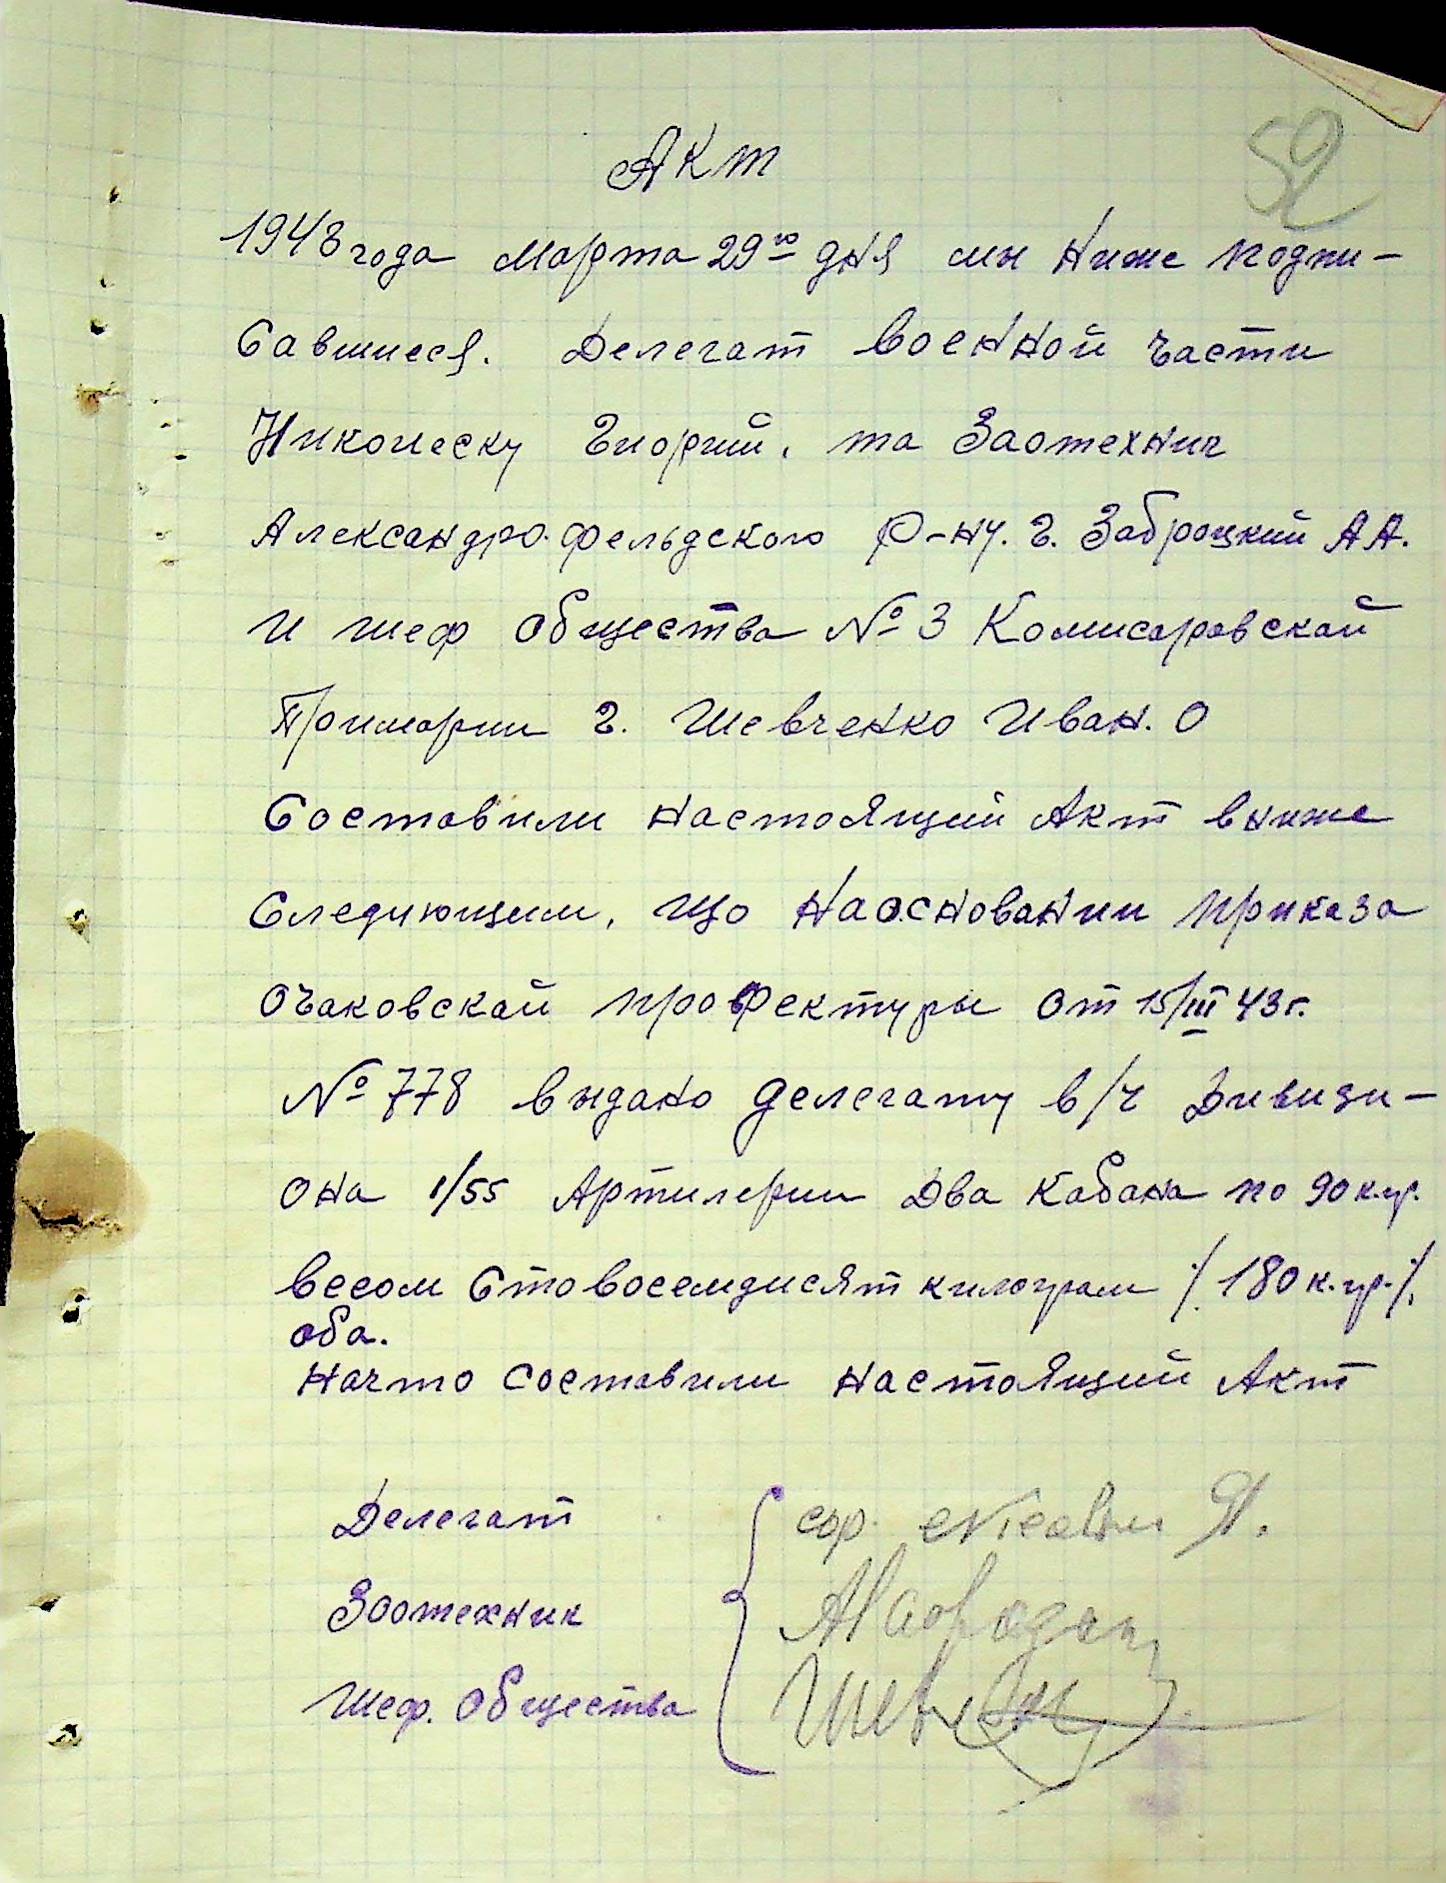 52
Акт
1943 года Марта 29го дня мы Ниже подпи-
савшиеся. Делегат Военной части
Никонеску Гиоргий, та Заотехнич
Александро.фельдского Р-ну. г. Заброцкий А А.
и шеф общества № 3 Комисаровской
Примарии г. Шевченко Иван. О
Составили настоящий Акт вниже
Следующим, що Наосновании приказа
Очаковской профектуры от 15/III 43 г.
№ 778 выдано делегату в/ч Дивизи-
она 1/55 Артилерии Два кабана по 90 к.гр.
весом Стовосемдисят килограм /. 180 к.гр./.
оба.
Начто составили настоящий Акт
Делегат
Зоотехник
Шеф. Общества